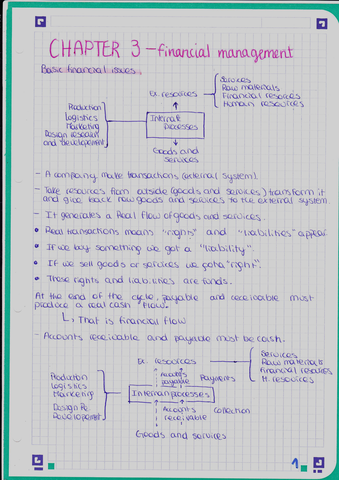 CHAPTER 3 - financial management
Basic financial issues:
Ex. resources
Services
Raw materials
Financial resources
Human resources
Production
Logistics
Marketing
Design research
and development
Internal
processes
Goods and
services
- A company make transactions (external system).
- Take resources from outside (goods and services) transform it
and give back new goods and services to the external system.
- It generates a Real flow of goods and services.
• Real transactions means "rights" and "liabilities" appear
• If we buy something we got a "liability".
• If we sell goods or services we got a "right".
• These rights and liabilities are funds.
At the end of the cycle, payable and receivable must
produce a real cash flow.
↳ That is financial flow
- Accounts receivable and payable must be cash.
Ex. resources
Services
Raw materials
Financial resources
H. resources
Production
Logistics
Marketing
Design Re
Developement
Accounts
payable
Payments
Internal processes
Accounts
receivable
Collection
Goods and services
1